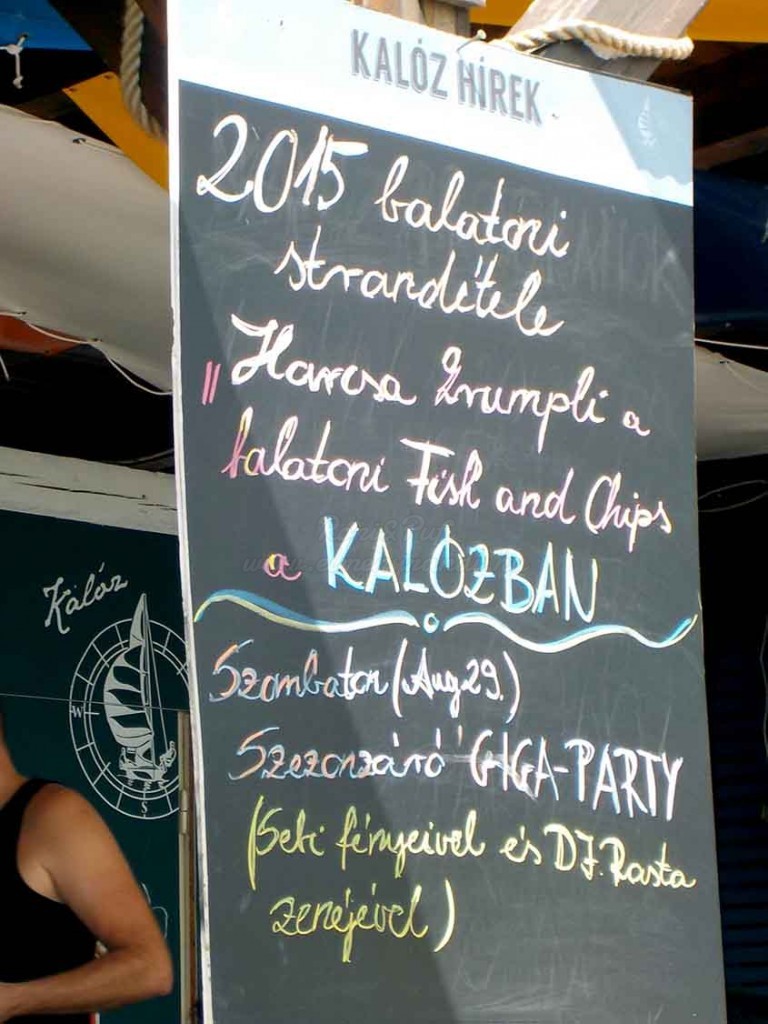 KALÓZ HÍREK
2015 balatoni
strandétele
"Harcsa Krumpli a
balatoni Fish and Chips
a KALÓZBAN
Szombaton (Aug 29.)
Szezonzáró GIGA-PARTY
(Sebi fényeivel és DJ. Rasta
zenéjével)
Kalóz
W
S